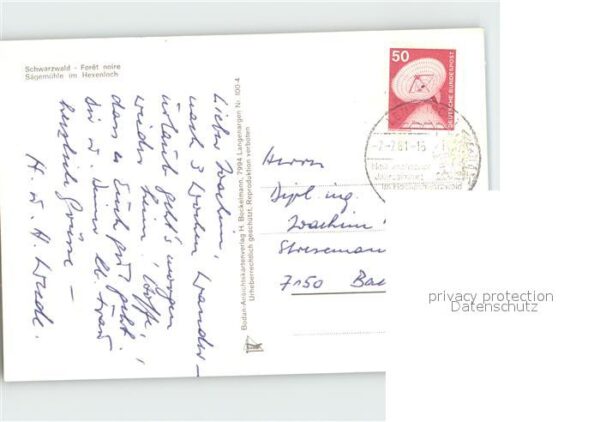 Schwarzwald - Forêt noire
Sägemühle im Hexenloch
Lieber Joachim,
nach 3 Wochen Wander-
urlaub geht's morgen
wieder heim. Hoffe,
dass es Euch gut geht.
Dir u. Deiner lb. Frau
herzliche Grüsse -
H. u. H.
Bodan-Ansichtskartenverlag H. Bockelmann, 7994 Langenargen Nr. 500-4
Urheberrechtlich geschützt. Reproduktion verboten
50
DEUTSCHE BUNDESPOST
Herrn
Dipl. ing.
Joachim
Streseman
7150 Bac
privacy protection
Datenschutz